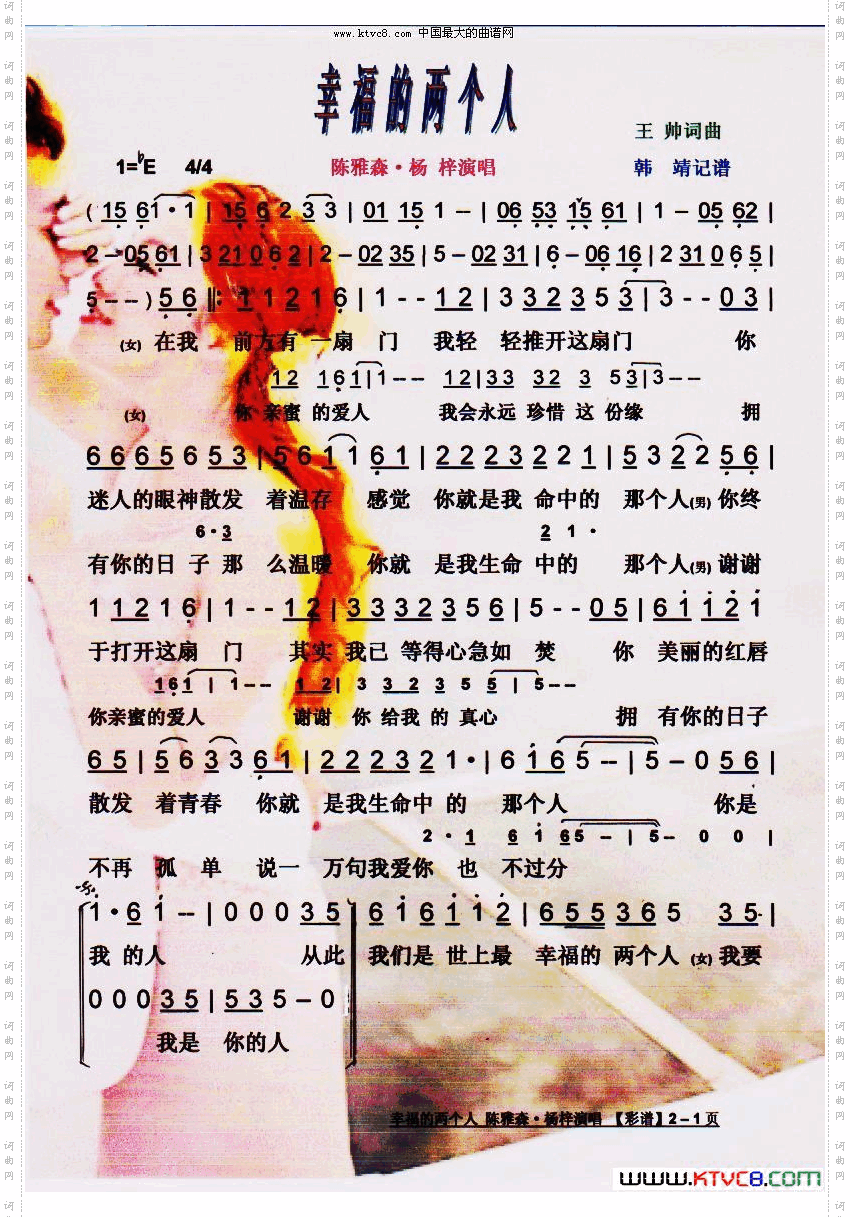 www.ktvc8.com 中国最大的曲谱网
幸福的两个人
王 帅词曲
1=♭E 4/4 陈雅森·杨 梓演唱 韩 靖记谱
( 15 61·1 | 15 6 2 3 3 | 01 15 1 – | 06 53 15 61 | 1 – 05 62 |
2 – 05 61 | 3 210 6 2 | 2 – 02 35 | 5 – 02 31 | 6 – 06 16 | 2 310 6 5 |
5 – – ) 5 6 ‖: 1 1 2 1 6 | 1 - - 1 2 | 3 3 2 3 5 3 | 3 - - 0 3 |
(女) 在我 前方有 一扇 门 我轻 轻推开这扇门 你
1 12 161 | 1 – – 12 | 33 32 3 53 | 3 – –
(女) 你 亲蜜 的爱人 我会永远 珍惜 这 份缘 拥
6 6 6 5 6 5 3 | 5 6 1 1 6 1 | 2 2 2 3 2 2 1 | 5 3 2 2 5 6 |
迷人的眼神散发 着温存 感觉 你就是我 命中的 那个人(男)你终
6·3 2 1 ·
有你的日 子 那 么温暖 你就 是我生命 中的 那个人(男)谢谢
1 1 2 1 6 | 1 - - 1 2 | 3 3 3 2 3 5 6 | 5 - - 0 5 | 6 1 1 2 1
于打开这扇 门 其实 我已 等得心急如 焚 你 美丽的红唇
161 | 1 – – 1 2 | 3 3 2 3 5 5 | 5 – –
你亲蜜的爱人 谢谢 你 给我 的 真心 拥 有你的日子
6 5 | 5 6 3 3 6 1 | 2 2 2 3 2 1 · | 6 1 6 5 – – | 5 – 0 5 6 |
散发 着青春 你就 是我生命中 的 那个人 你是
2 · 1 6 1 65 – | 5 – 0 0 |
不再 孤 单 说一 万句我爱你 也 不过分
1 · 6 1 – – | 0 0 0 3 5 | 6 1 6 1 1 2 | 6 5 5 3 6 5 3 5 |
我 的人 从此 我们是 世上最 幸福的 两个人 (女)我要
0 0 0 3 5 | 5 3 5 – 0
我是 你的人
幸福的两个人 陈雅森·杨梓演唱 【彩谱】2–1页
www.KTVC8.COM